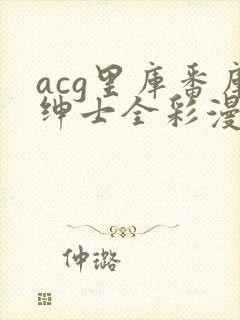 acg里库番库
绅士全彩漫
仲璐